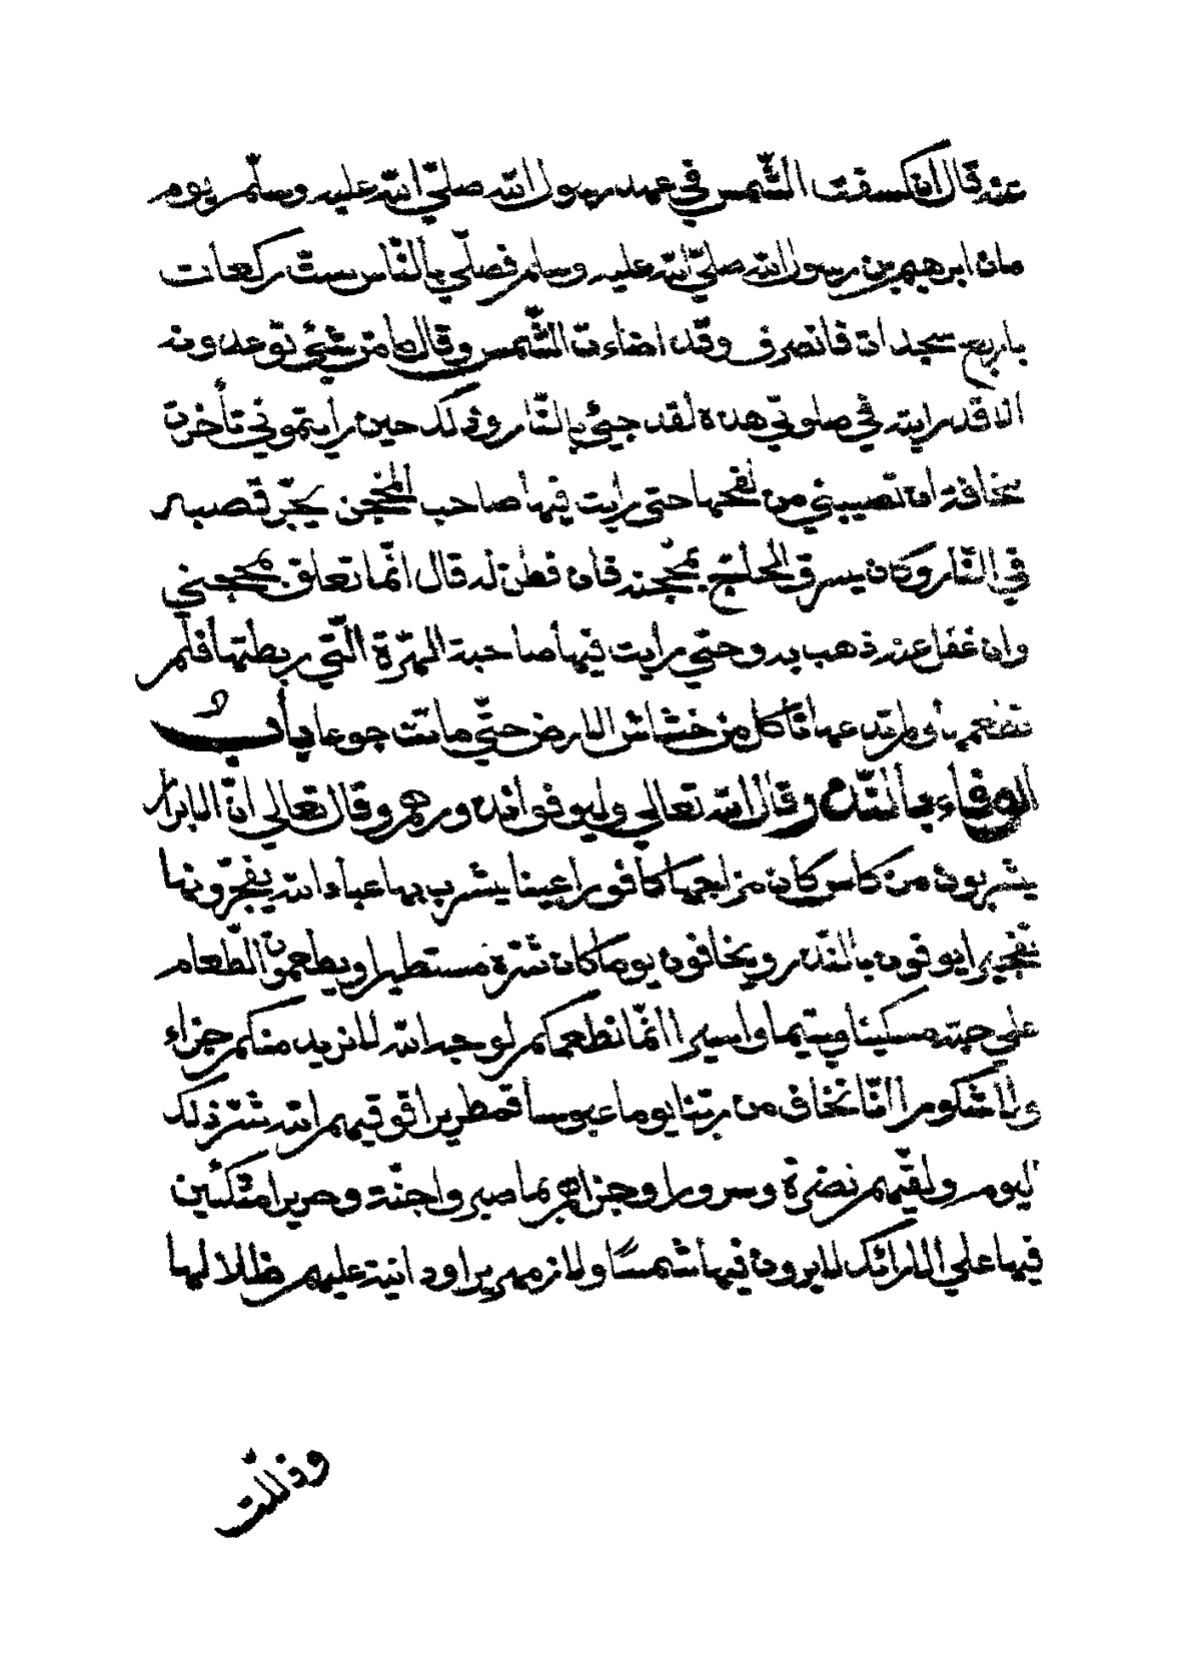 عنه قال انكسفت الشّمس في عهد رسول الله صلّي الله عليه وسلّم يوم
مات ابرهيم بن رسول الله صلّي الله عليه وسلم فصلّي بالنّاس ستّ ركعات
باربع سجدات فانصرف وقد اضاءت الشّمس وقال ما من شيئ توعدونه
الا قد رايته في صلوتي هذه لقد جيئ بالنّار وذلك حين رأيتموني تأخرت
مخافة ان تصيبني من لفحها حتى رايت فيها صاحب المحجن يجرّ قصبه
في النّار وكان يسرق الحاج بمحجنه فان فطن له قال انّما تعلق بمحجني
وان غفل عنه ذهب به وحتي رايت فيها صاحبة الهرّة الّتي ربطتها فلم
تطعمها ولم تدعها تأكل من خشاش الارض حتّي ماتت جوعا باب
الوفاء بالنّذر وقال الله تعالي وليوفوا نذورهم وقال تعالي انّ الابرار
يشربون من كاس كان مزاجها كافورا عينا يشرب بها عباد الله يفجّرونها
تفجيرا يوفون بالنّذر ويخافون يوما كان شرّه مستطيرا ويطعمون الطّعام
علي حبّه مسكينا ويتيما واسيرا انّما نطعمكم لوجه الله لا نريد منكم جزاء
ولا شكورا انّا نخاف من ربّنا يوما عبوسا قمطريرا فوقيهم الله شرّ ذلك
اليوم ولقّيهم نضرة وسرورا وجزاهم بما صبروا جنّة وحريرا متّكئين
فيها علي الارائك لا يرون فيها شمسًا ولا زمهريرا ودانية عليهم ظلالها
وذلّلت